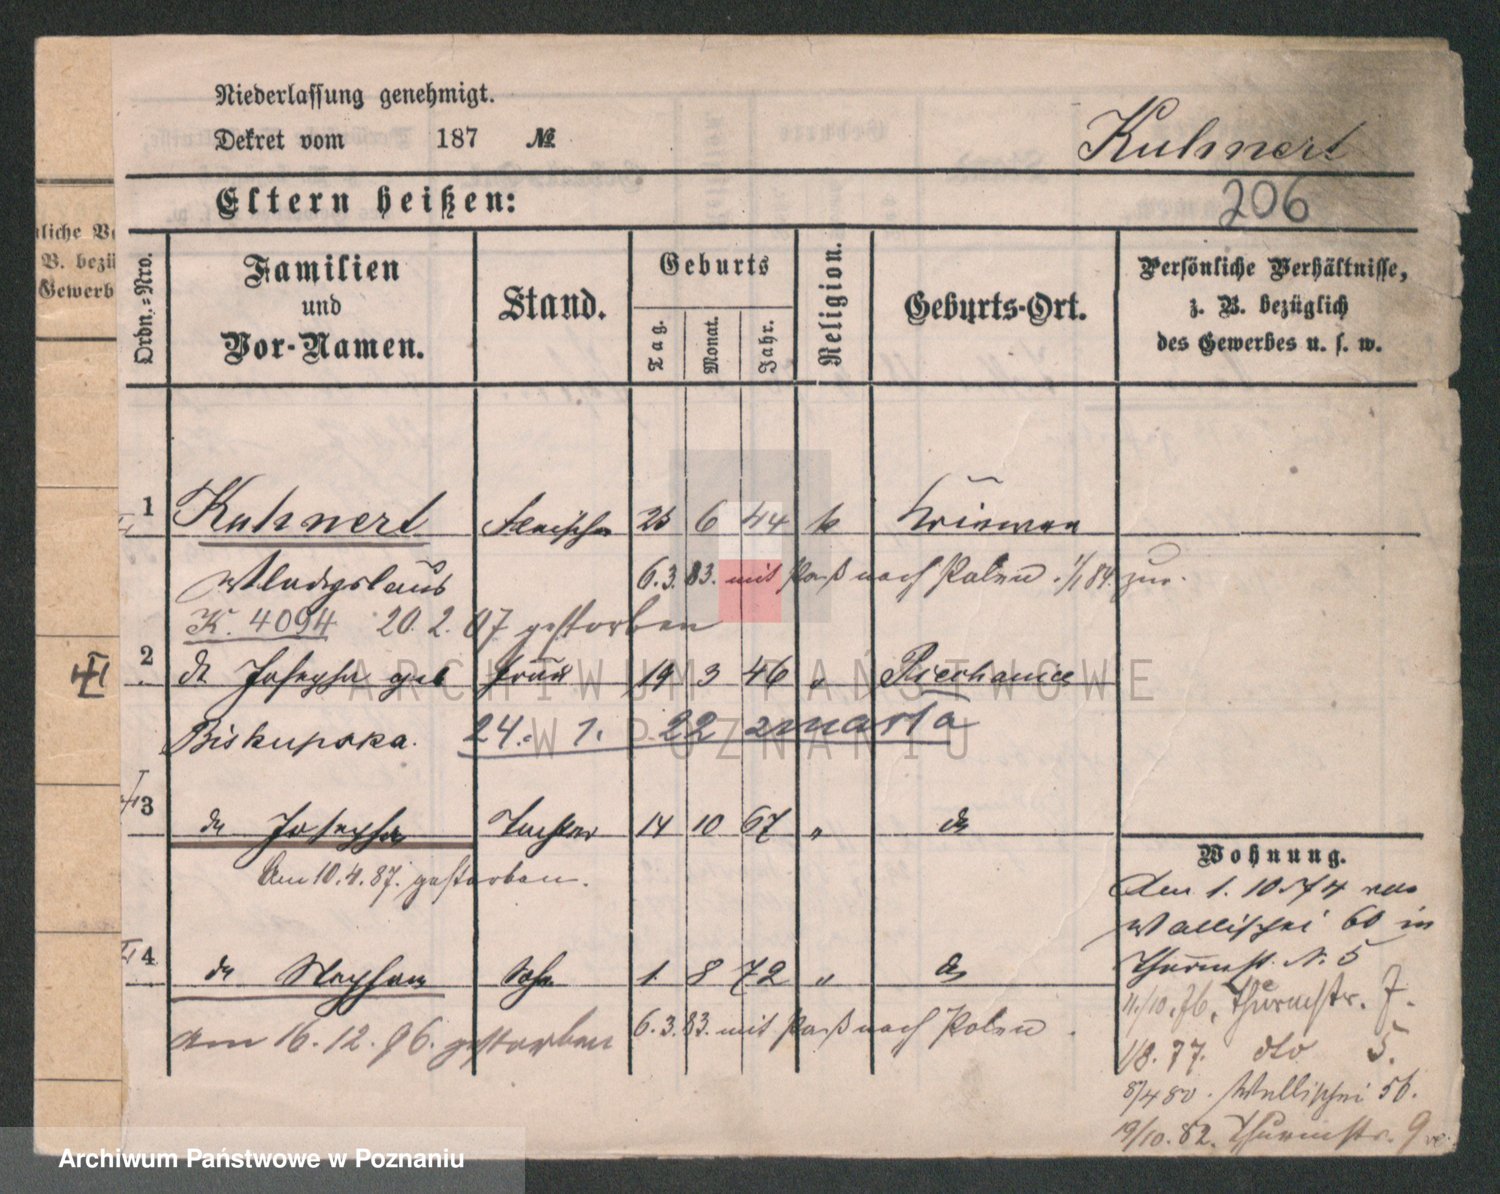 Niederlassung genehmigt.
Dekret vom 187 №
Kuhnert
Eltern heißen:
206
Ordn.=Nro.
Familien
und
Vor-Namen.
Stand.
Geburts
Tag.
Monat.
Jahr.
Religion.
Geburts-Ort.
Persönliche Verhältnisse,
z. B. bezüglich
des Gewerbes u. s. w.
liche Ve
B. bezü
Gewerb
1 Kuhnert 25 6 44 k
Wladyslaus 6.3.83. mit Paß nach Polen. 1/1 84 zur.
K. 4094 20. 2. 07 gestorben
2 Josepha geb Frau 19 3 46 "
Biskupska. 24. 1. 22 zmarła
3 do Josepha Tochter 14 10 67 " do
Am 10.4.87. gestorben.
Wohnung.
Am 1. 10. 74 von
Wallischei 60 in
Thurmstr. N. 5
11/10. 76. Thurmstr. 7.
1/8. 77. dto 5.
8/4 80. Wallischei 56.
19/10. 82. Thurmstr. 9
4 do Stephan Sohn 1. 8 72 " do
am 16. 12. 96. gestorben 6.3.83. mit Paß nach Polen.
ARCHIWUM PAŃSTWOWE
W POZNANIU
Archiwum Państwowe w Poznaniu